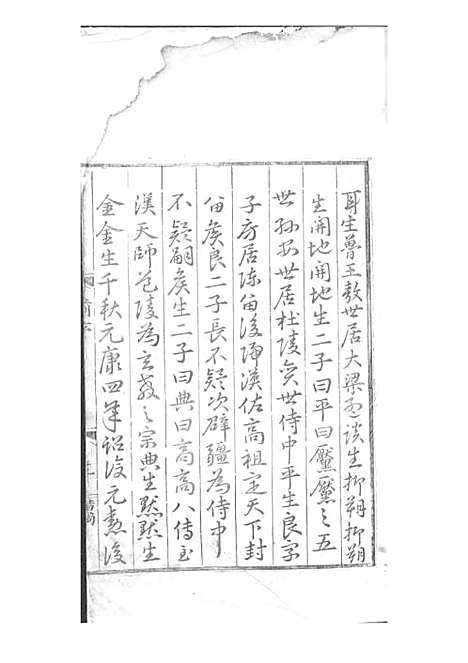 耳生魯王敖世居大梁孟談生抑朔抑朔
生開地開地生二子曰平曰壓壓之五
世孫安世居杜陵奕世侍中平生良字
子房居陳留後歸漢佐高祖定天下封
留矦良二子長不疑次辟疆為侍中
不疑嗣矦生二子曰典曰高高八傳至
漢天師道陵為玄教之宗典生默默生
金金生千秋元康四年詔復元勳後